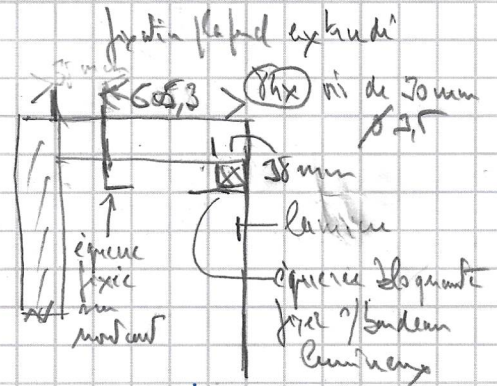 fixation plafond extrudé
35 mm
605,3
Phx vis de 30 mm
ø 3,5
38 mm
lumière
équerre
fixée
sur
montant
équerre bloquante
fixer s/ bandeau
lumineux